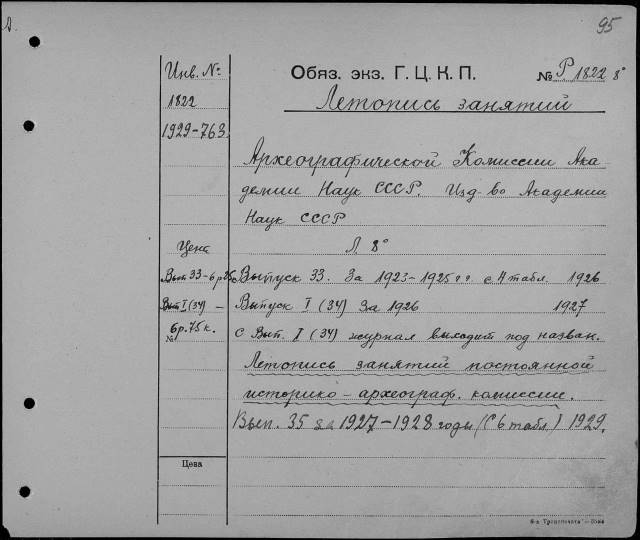 Д.
95
Инв. №
Обяз. экз. Г. Ц. К. П.
№ Р 1822 8°
1822
Летопись занятий
1929-763.
Археографической Комиссии Ака-
демии Наук СССР. Изд-во Академии
Наук СССР
Цена
Л. 8°
Вып 33 - 6 р 25 к.
Выпуск 33. За 1923-1925 гг. с 4 табл. 1926
Вып I (34) -
Выпуск I (34) за 1926 1927
6 р. 75 к.
№
с Вып. I (34) журнал выходит под назван.
Летопись занятий постоянной
историко-археограф. комиссии.
Вып. 35 за 1927-1928 годы (С 6 табл.) 1929.
Цена